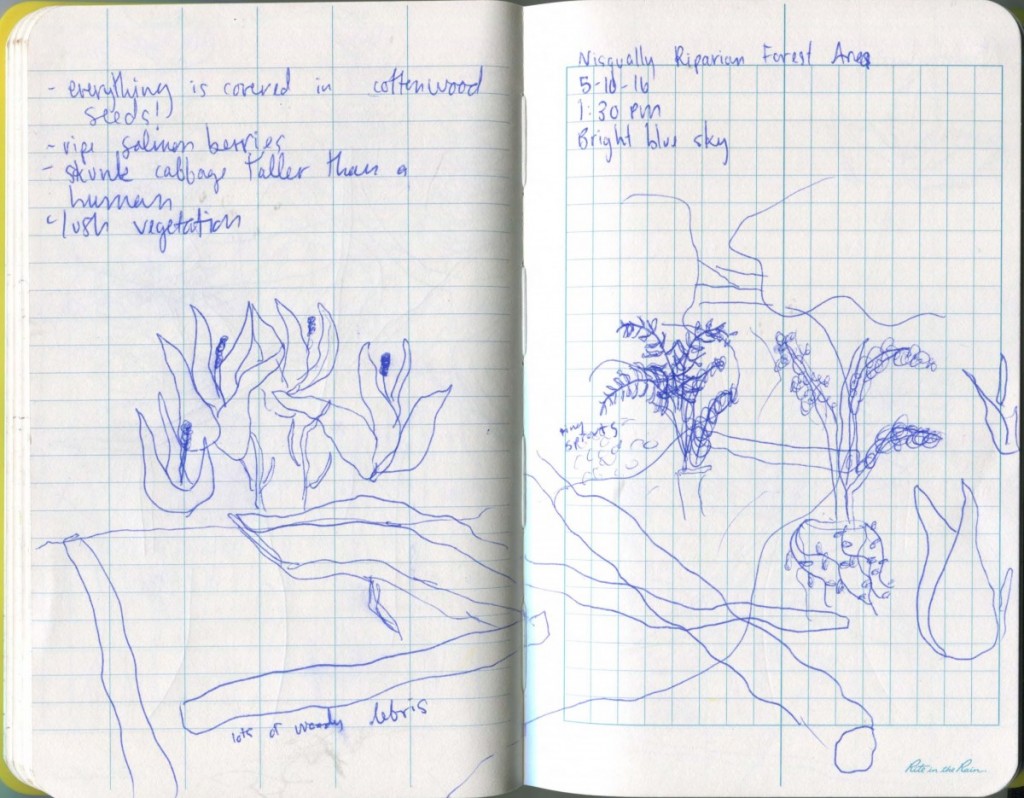 - everything is covered in cottonwood
seeds!
- ripe salmon berries
- skunk cabbage taller than a
human
- lush vegetation
lots of woody debris
Nisqually Riparian Forest Area
5-10-16
1:30 pm
Bright blue sky
tiny
sprouts
Rite in the Rain